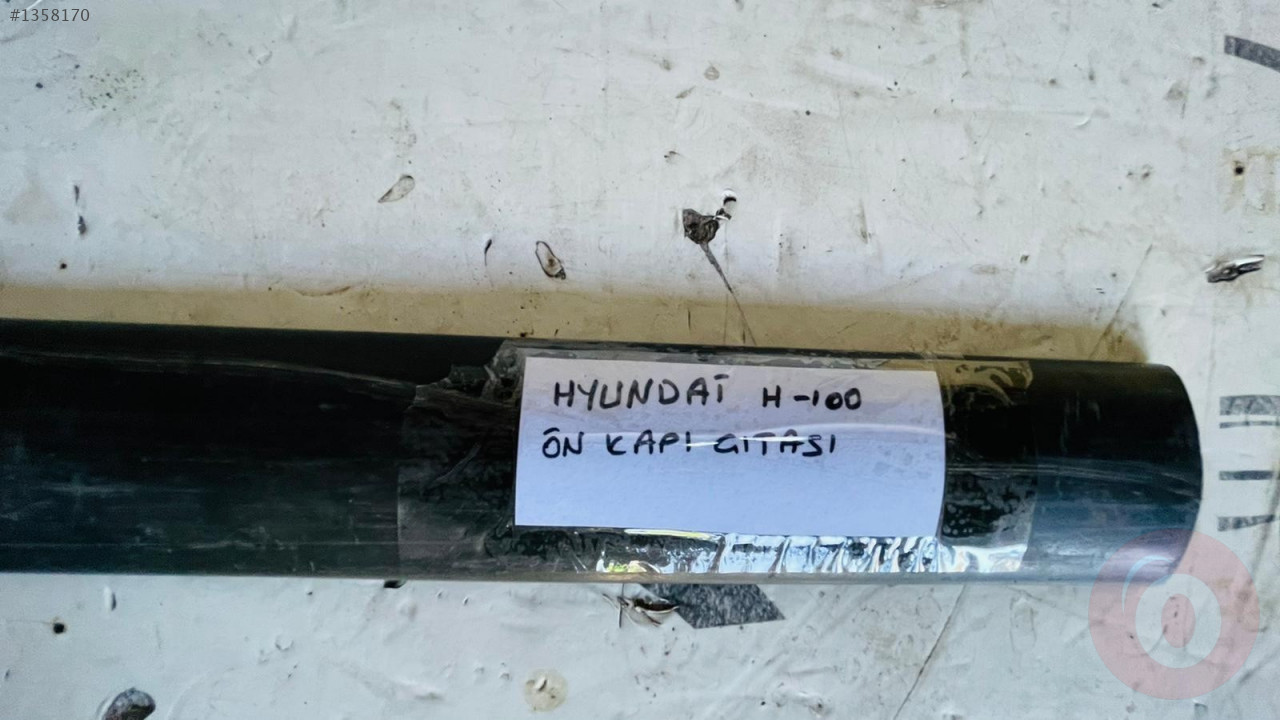 #1358170
HYUNDAİ H-100
ÖN KAPI GITASI